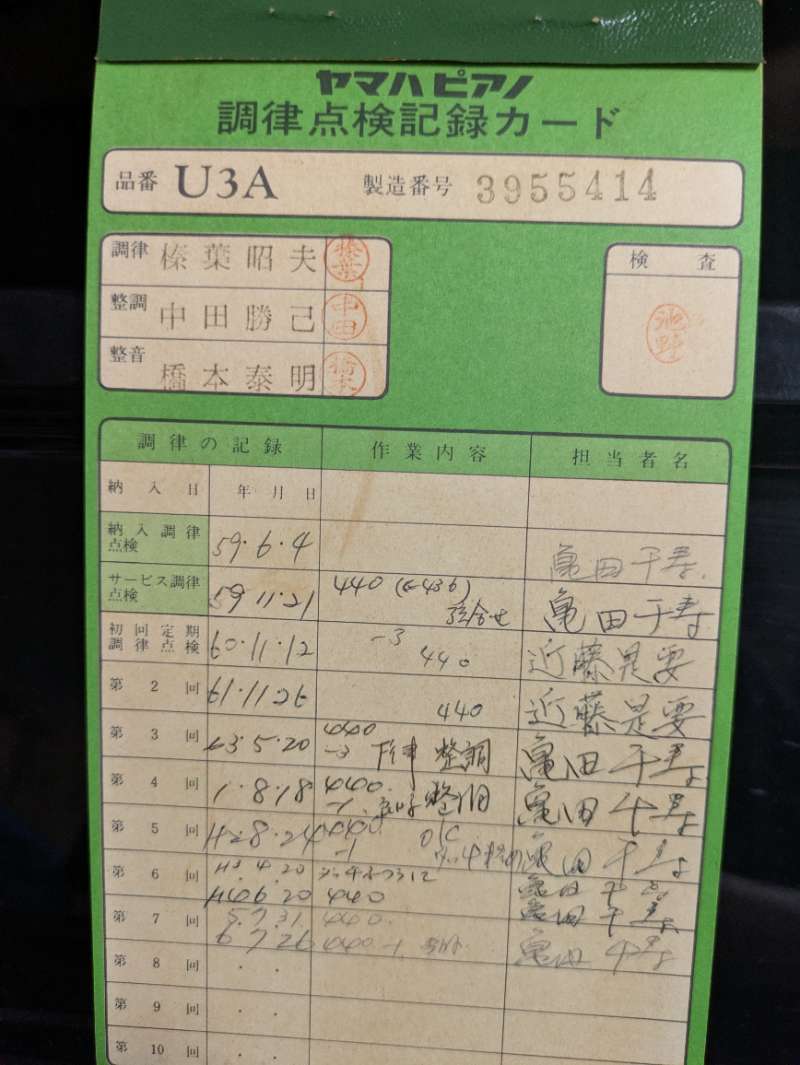 ヤマハピアノ
調律点検記録カード
品番 U3A 製造番号 3955414
調律 榛葉昭夫 榛葉
整調 中田勝己 中田
整音 橋本泰明 橋本
検査
池野
調律の記録 作業内容 担当者名
納入日 年 月 日
納入調律点検 59.6.4 亀田千寿
サービス調律点検 59 11.21 440 (←436) 弦合せ 亀田千寿
初回定期調律点検 60.11.12 -3 440 近藤是要
第2回 61.11 26 440 近藤是要
第3回 63.5.20 440 -3 整調 亀田千寿
第4回 1.8.18 440 -1 亀田千寿
第5回 H2 8.24 440 -1 亀田千寿
第6回 4.20 亀田千寿
H4 6.20 440 亀田千寿
第7回 5.7.31 440
6 7 26 440 -1 亀田千寿
第8回
第9回
第10回